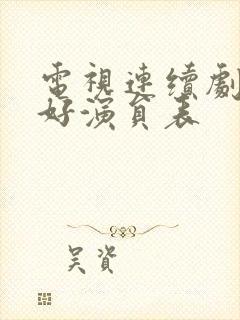 電視連續劇
好演員表
吴資